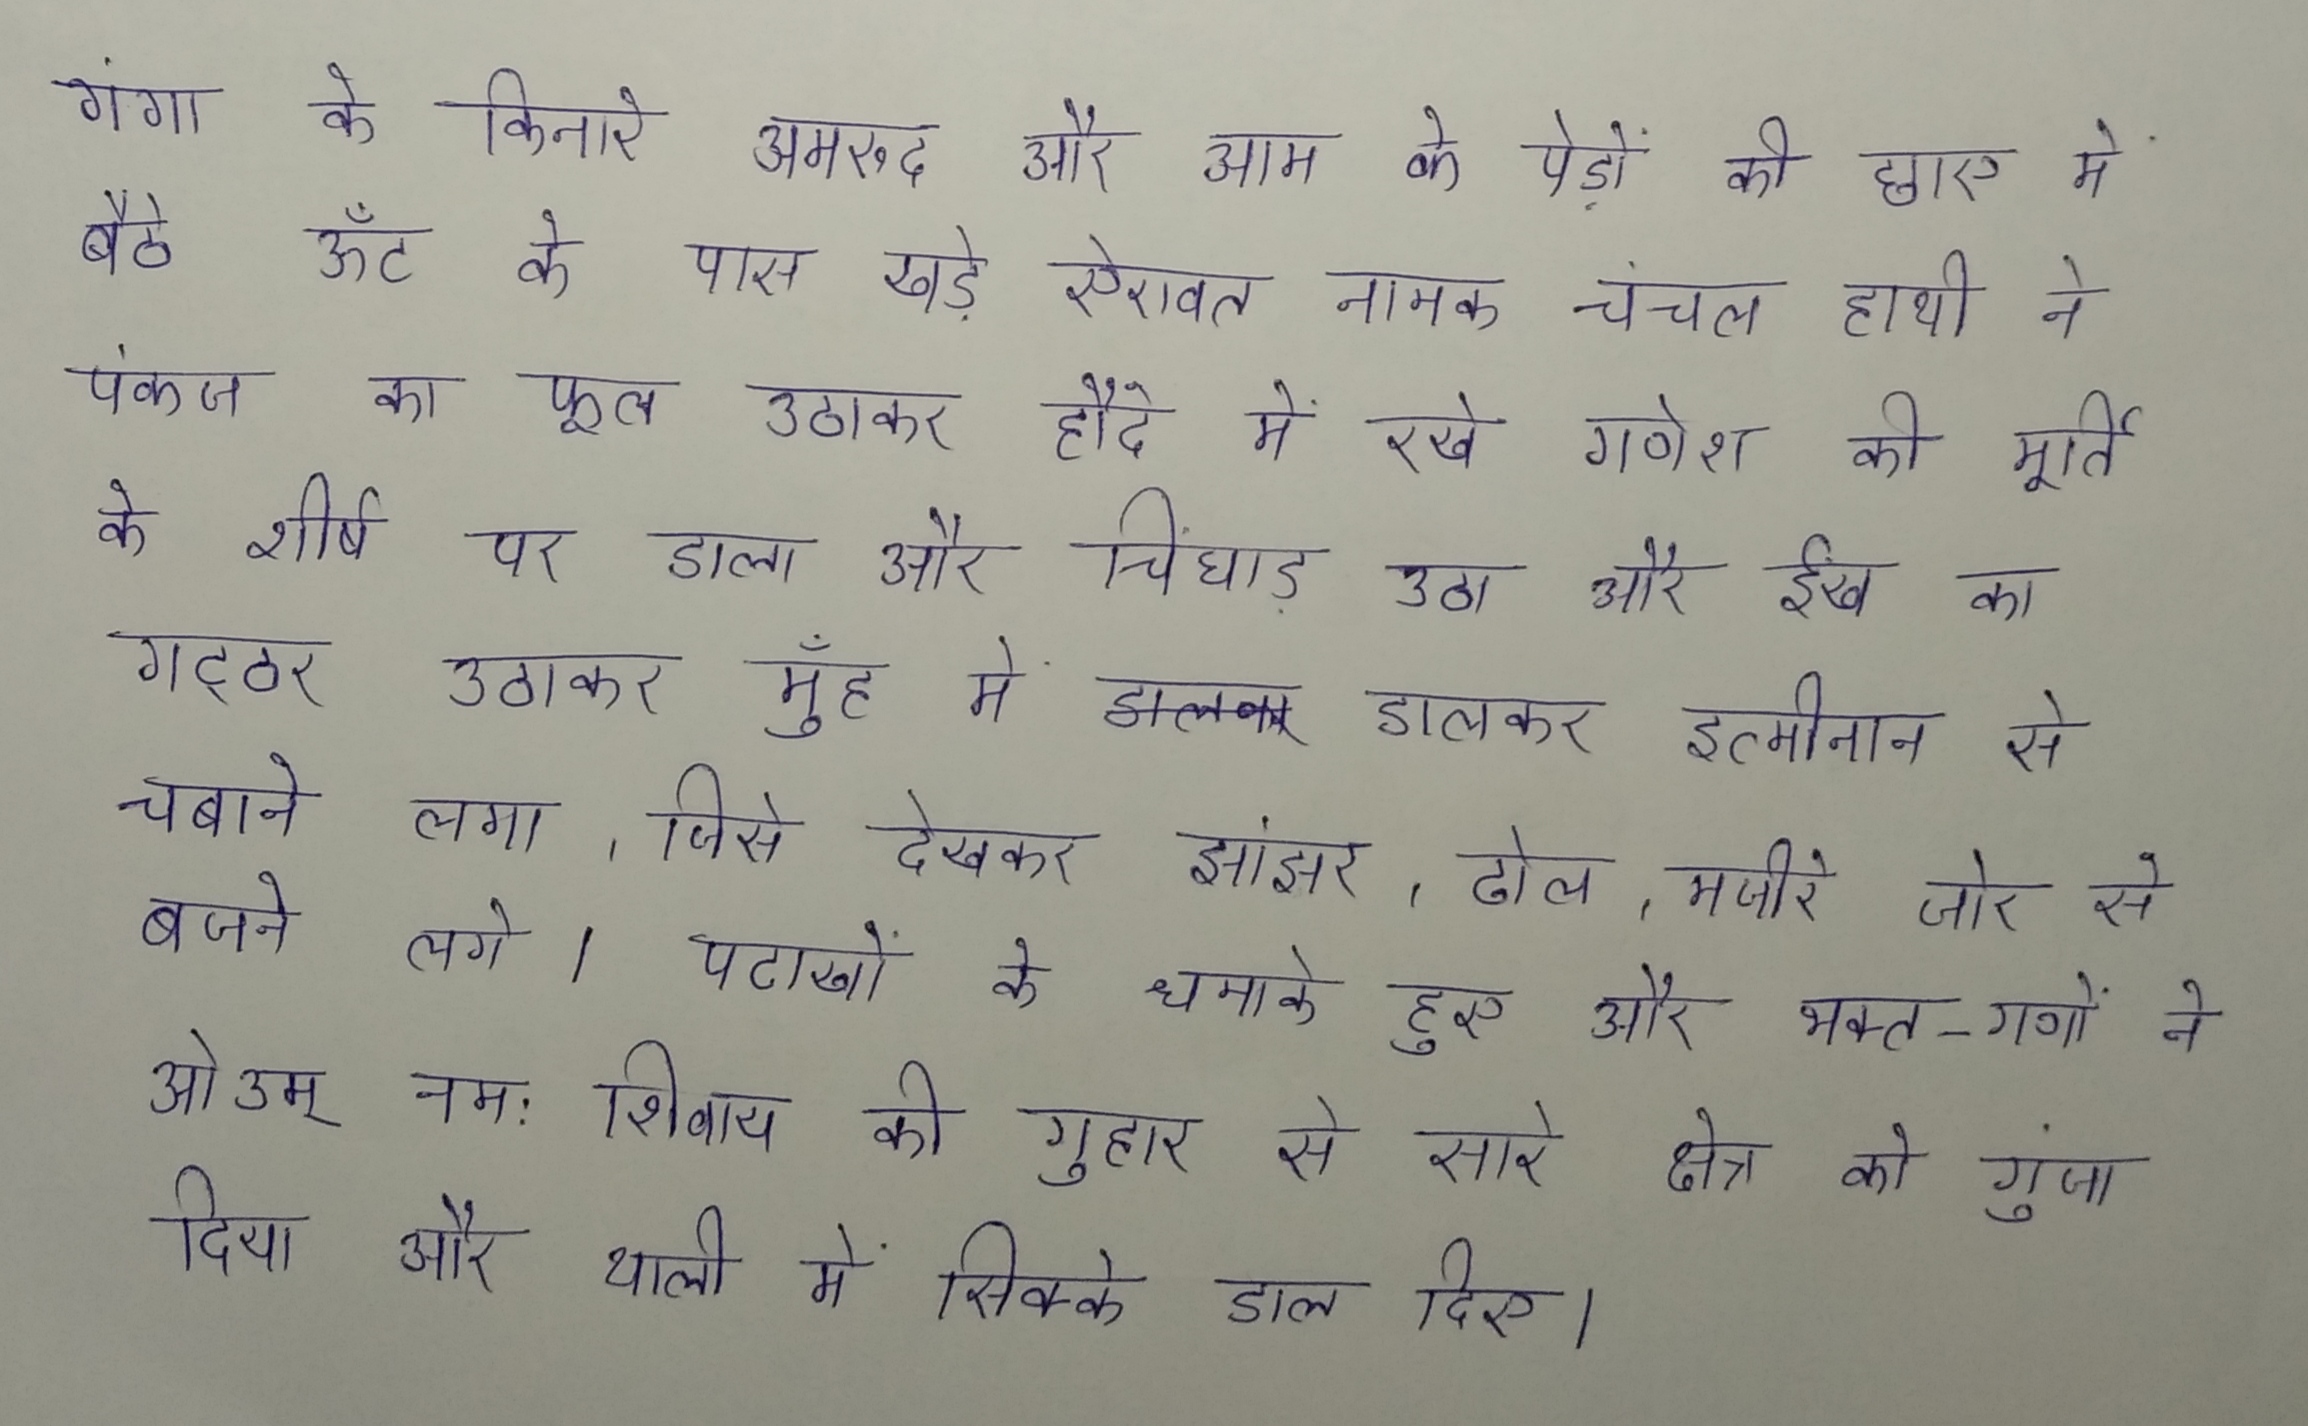 गंगा के किनारे अमरुद और आम के पेड़ों की छाए में
बैठे ऊँट के पास खड़े ऐरावत नामक चंचल हाथी ने
पंकज का फूल उठाकर हौदे में रखे गणेश की मूर्ति
के शीर्ष पर डाला और चिंघाड़ उठा और ईख का
गट्ठर उठाकर मुँह में डालकर डालकर इत्मीनान से
चबाने लगा, जिसे देखकर झांझर, ढोल, मजीरे जोर से
बजने लगे। पटाखों के धमाके हुए और भक्त-गणों ने
ओउम् नमः शिवाय की गुहार से सारे क्षेत्र को गुंजा
दिया और थाली में सिक्के डाल दिए।